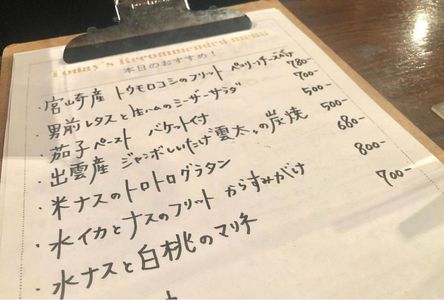 Today's Recommended menu
本日のおすすめ!
・宮崎産 トウモロコシのフリット ペッパーチーズがけ 780-
・男前レタスと生ハムのシーザーサラダ 700-
・茄子ペースト バケット付 500-
・出雲産 ジャンボしいたけ"雲太"の炭焼 500-
・米ナスのトロトログラタン 680-
・水イカとナスのフリット からすみがけ 800-
・水ナスと白桃のマリネ 700-